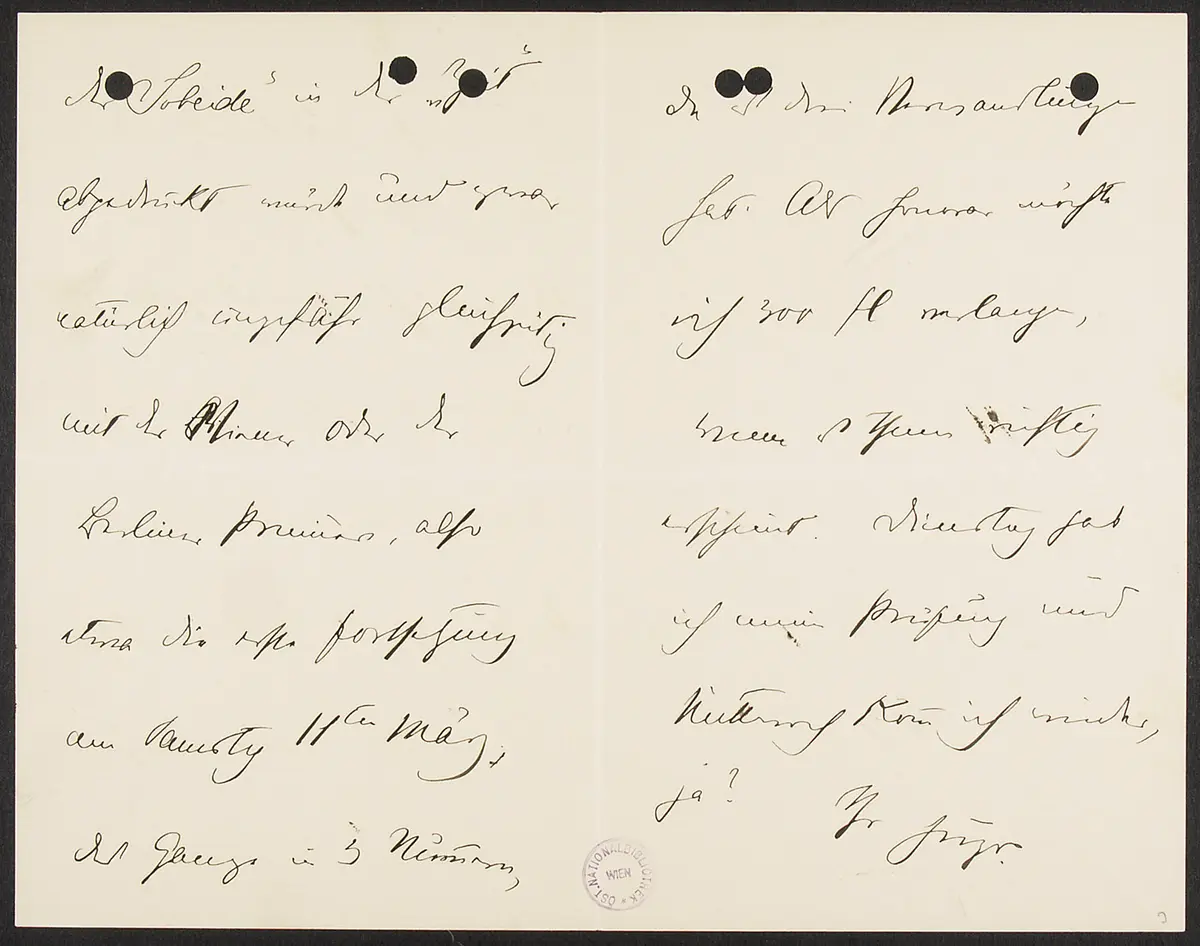 der „Sobeide“ in der „Zeit“
abgedruckt würde und zwar
natürlich ungefähr gleichzeitig
mit der Wiener oder der
Berliner Premiere, also
etwa die erste Fortsetzung
am Samstg 11ten März,
das Ganze in 3 Nummern,
da es drei Verwandlungen
hat. Als Honorar möchte
ich 300 fl verlangen,
wenn es Ihnen richtig
erscheint. Dienstag hab
ich meine Prüfung und
Mittwoch kom̄ ich wieder,
ja? Ihr Hugo.
ÖST. NATIONALBIBLIOTHEK
WIEN